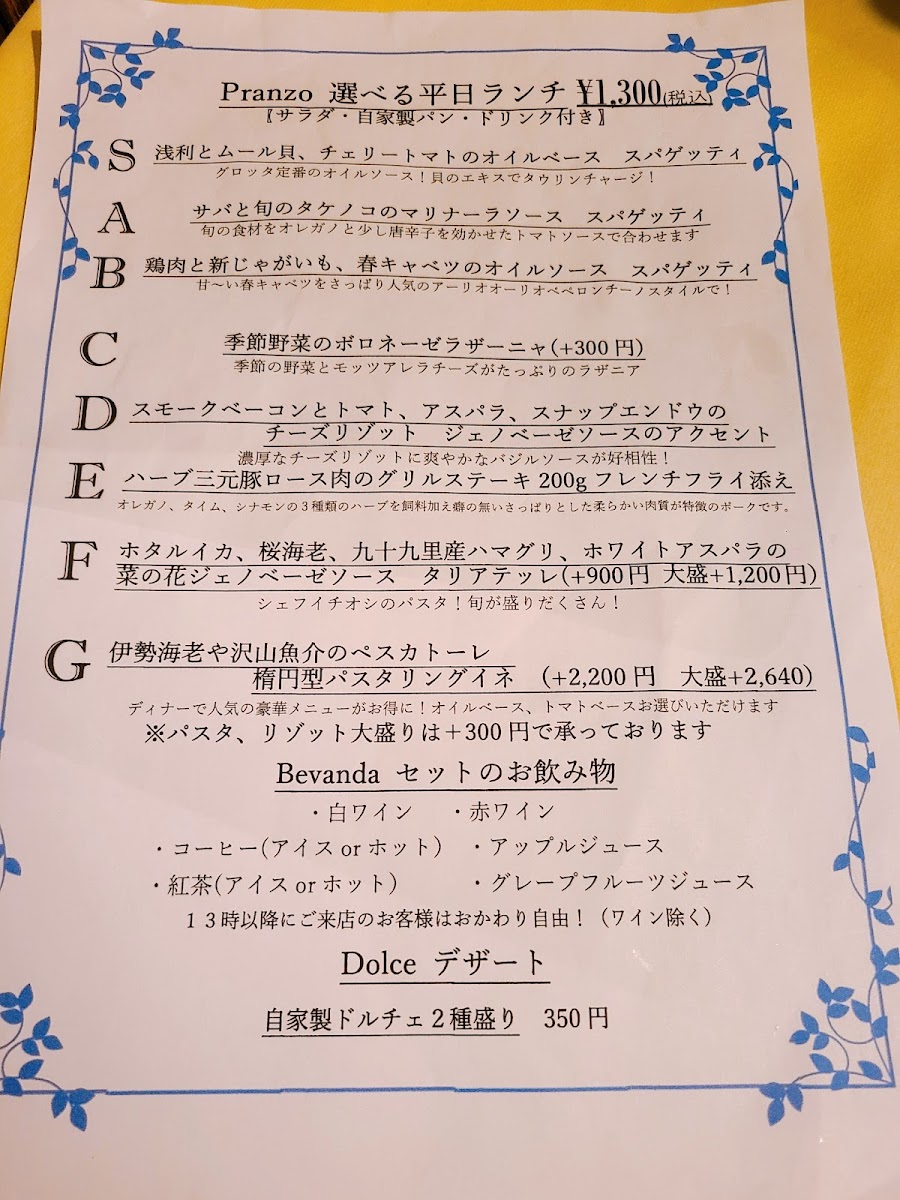 Pranzo 選べる平日ランチ ¥1,300(税込)
〖サラダ・自家製パン・ドリンク付き〗
S 浅利とムール貝、チェリートマトのオイルベース スパゲッティ
グロッタ定番のオイルソース！貝のエキスでタウリンチャージ！
A サバと旬のタケノコのマリナーラソース スパゲッティ
旬の食材をオレガノと少し唐辛子を効かせたトマトソースで合わせます
B 鶏肉と新じゃがいも、春キャベツのオイルソース スパゲッティ
甘〜い春キャベツをさっぱり人気のアーリオオーリオペペロンチーノスタイルで！
C 季節野菜のボロネーゼラザーニャ(+300円)
季節の野菜とモッツアレラチーズがたっぷりのラザニア
D スモークベーコンとトマト、アスパラ、スナップエンドウの
チーズリゾット ジェノベーゼソースのアクセント
濃厚なチーズリゾットに爽やかなバジルソースが好相性！
E ハーブ三元豚ロース肉のグリルステーキ 200g フレンチフライ添え
オレガノ、タイム、シナモンの３種類のハーブを飼料加え癖の無いさっぱりとした柔らかい肉質が特徴のポークです。
F ホタルイカ、桜海老、九十九里産ハマグリ、ホワイトアスパラの
菜の花ジェノベーゼソース タリアテッレ(+900円 大盛+1,200円)
シェフイチオシのパスタ！旬が盛りだくさん！
G 伊勢海老や沢山魚介のペスカトーレ
楕円型パスタリングイネ (+2,200円 大盛+2,640)
ディナーで人気の豪華メニューがお得に！オイルベース、トマトベースお選びいただけます
※パスタ、リゾット大盛りは＋300円で承っております
Bevanda セットのお飲み物
・白ワイン ・赤ワイン
・コーヒー(アイス or ホット) ・アップルジュース
・紅茶(アイス or ホット) ・グレープフルーツジュース
１３時以降にご来店のお客様はおかわり自由！（ワイン除く）
Dolce デザート
自家製ドルチェ２種盛り 350円